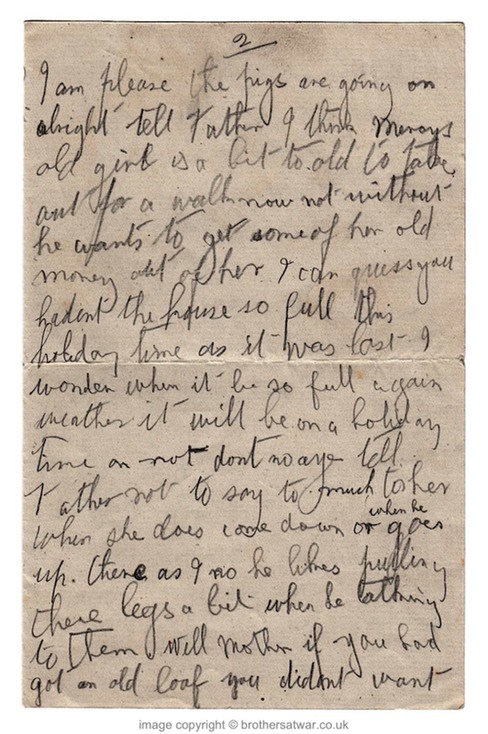 2
I am please the pigs are going on
alright tell Father I think Mercys
old girl is a bit to old to take
out for a walk now not without
he wants to get some of her old
money out of her I can guess you
hadent the house so full this
holiday time as it was last I
wonder when it be so full again
weather it will be on a holiday
time or not dont no aye tell
Father not to say to much to her
when she does come down or when he goes
up. there as I no he likes pulling
there legs a bit when he talking
to them will Mother if you had
got an old loaf you didant want
image copyright © brothersatwar.co.uk